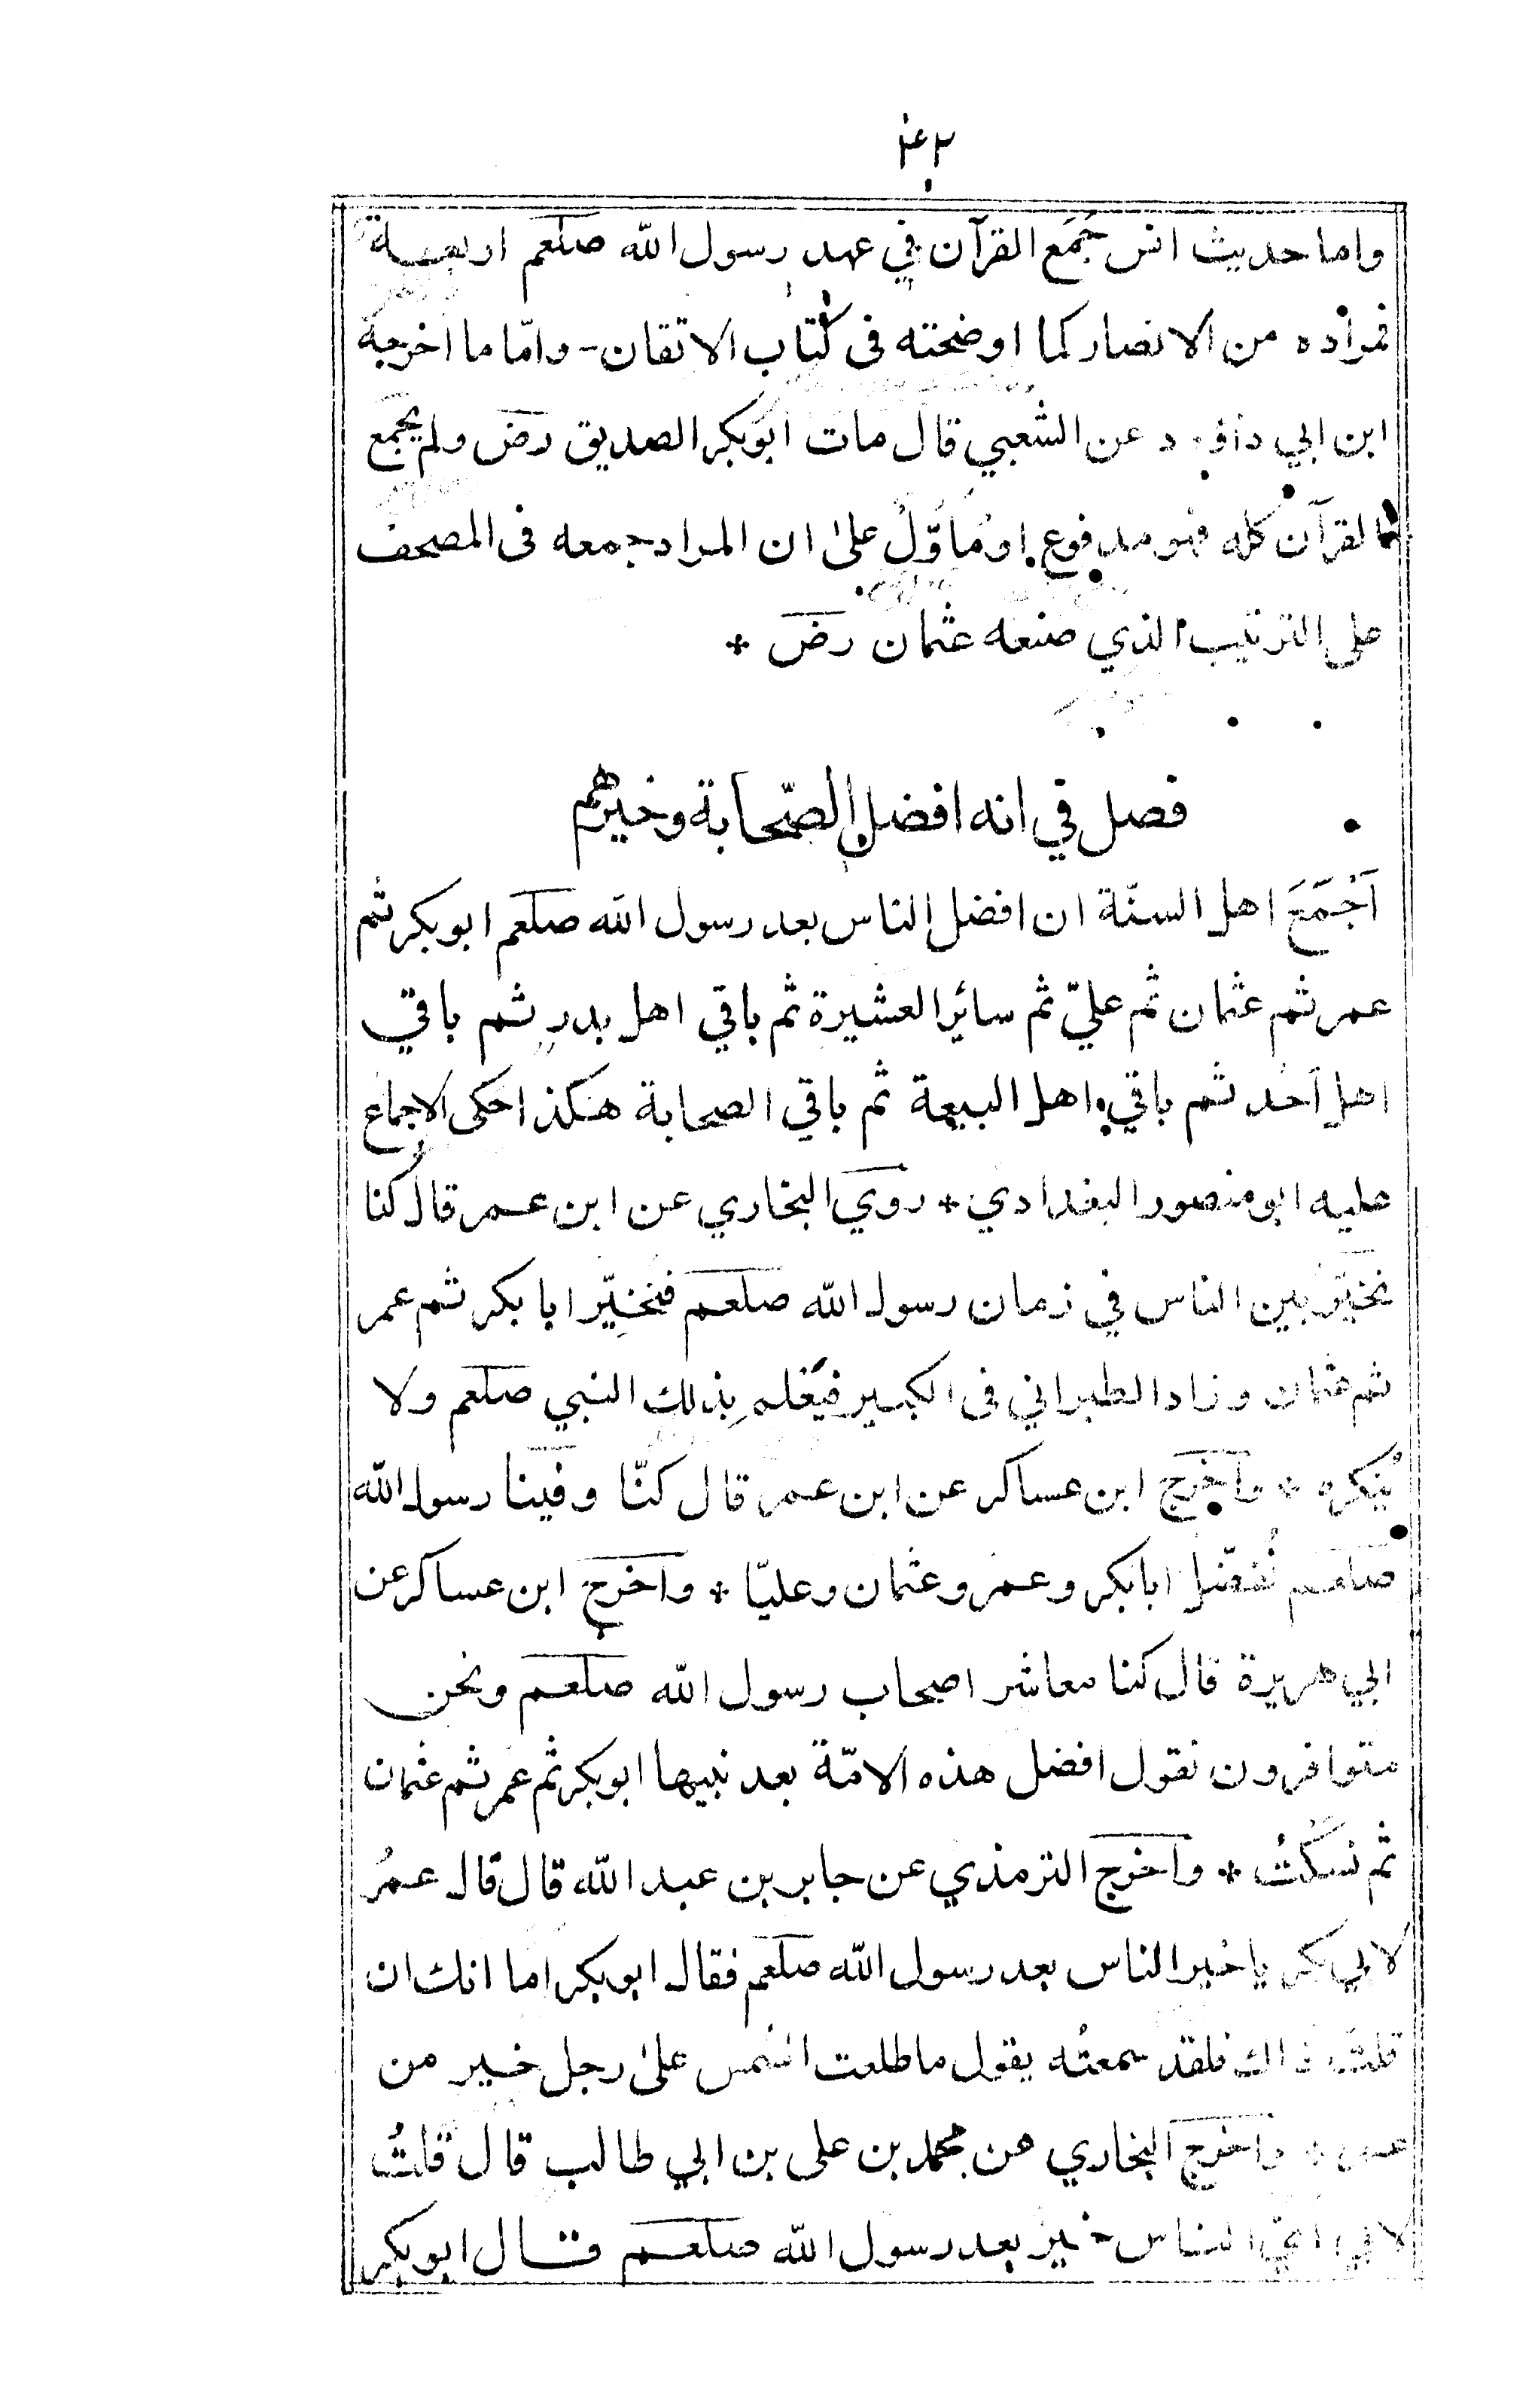 ٤٢
واما حديث انس جُمَع القرآن في عهد رسول الله صلعم اربعـة
فمراده من الانصار كما اوضحته فى كتاب الاتقان - وامّا ما اخرجه
ابن ابي داؤد عن الشعبي قال مات ابوبكر الصديق رض ولم يجمع
القرآن كله فهو مدفوع او مأوّل علىٰ ان المراد جمعه فى المصحف
على الترتيب الذي صنعه عثمان رض *
فصل في انه افضل الصّحابة وخيرهم
اَجْمَعَ اهل السنّة ان افضل الناس بعد رسول الله صلعم ابوبكر ثم
عمر ثم عثمان ثم عليّ ثم سائر العشيرة ثم باقي اهل بدرٍ ثم باقي
اهل اُحُد ثم باقي اهل البيعة ثم باقي الصحابة هكذا حكى الاجماع
عليه ابو منصور البغدادي * روي البخاري عن ابن عمر قال كنا
نخيّر بين الناس في زمان رسول الله صلعم فنخيِّر ابا بكر ثم عمر
ثم عثمان وزاد الطبراني فى الكبير فيَعْلم بِذلك النبي صلعم ولا
يُنكره * واخرج ابن عساكر عن ابن عمر قال كنّا وفينا رسول الله
صلعم نُفضّل ابا بكر وعمر وعثمان وعليّا * واخرج ابن عساكر عن
ابي هريرة قال كنا معاشر اصحاب رسول الله صلعم ونحن
متوافرون نقول افضل هذه الامّة بعد نبيها ابوبكر ثم عمر ثم عثمان
ثم نسكُتُ * واخرج الترمذي عن جابر بن عبد الله قال قال عمرُ
لابي بكر يا خير الناس بعد رسول الله صلعم فقال ابوبكر اما انك ان
قلتَ ذاك فلقد سمعتُه يقول ما طلعت الشمس علىٰ رجل خير من
عمر * واخرج البخاري عن محمد بن على بن ابي طالب قال قلتُ
لابي ايّ الناس خير بعد رسول الله صلعم قال ابوبكر